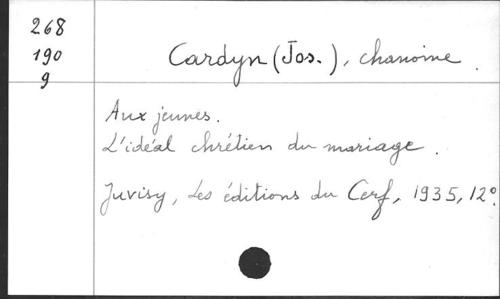 268
190
9
Cardyn (Jos.), chanoine.
Aux jeunes.
L'idéal chrétien du mariage.
Juvisy, Les éditions du Cerf, 1935, 12°.